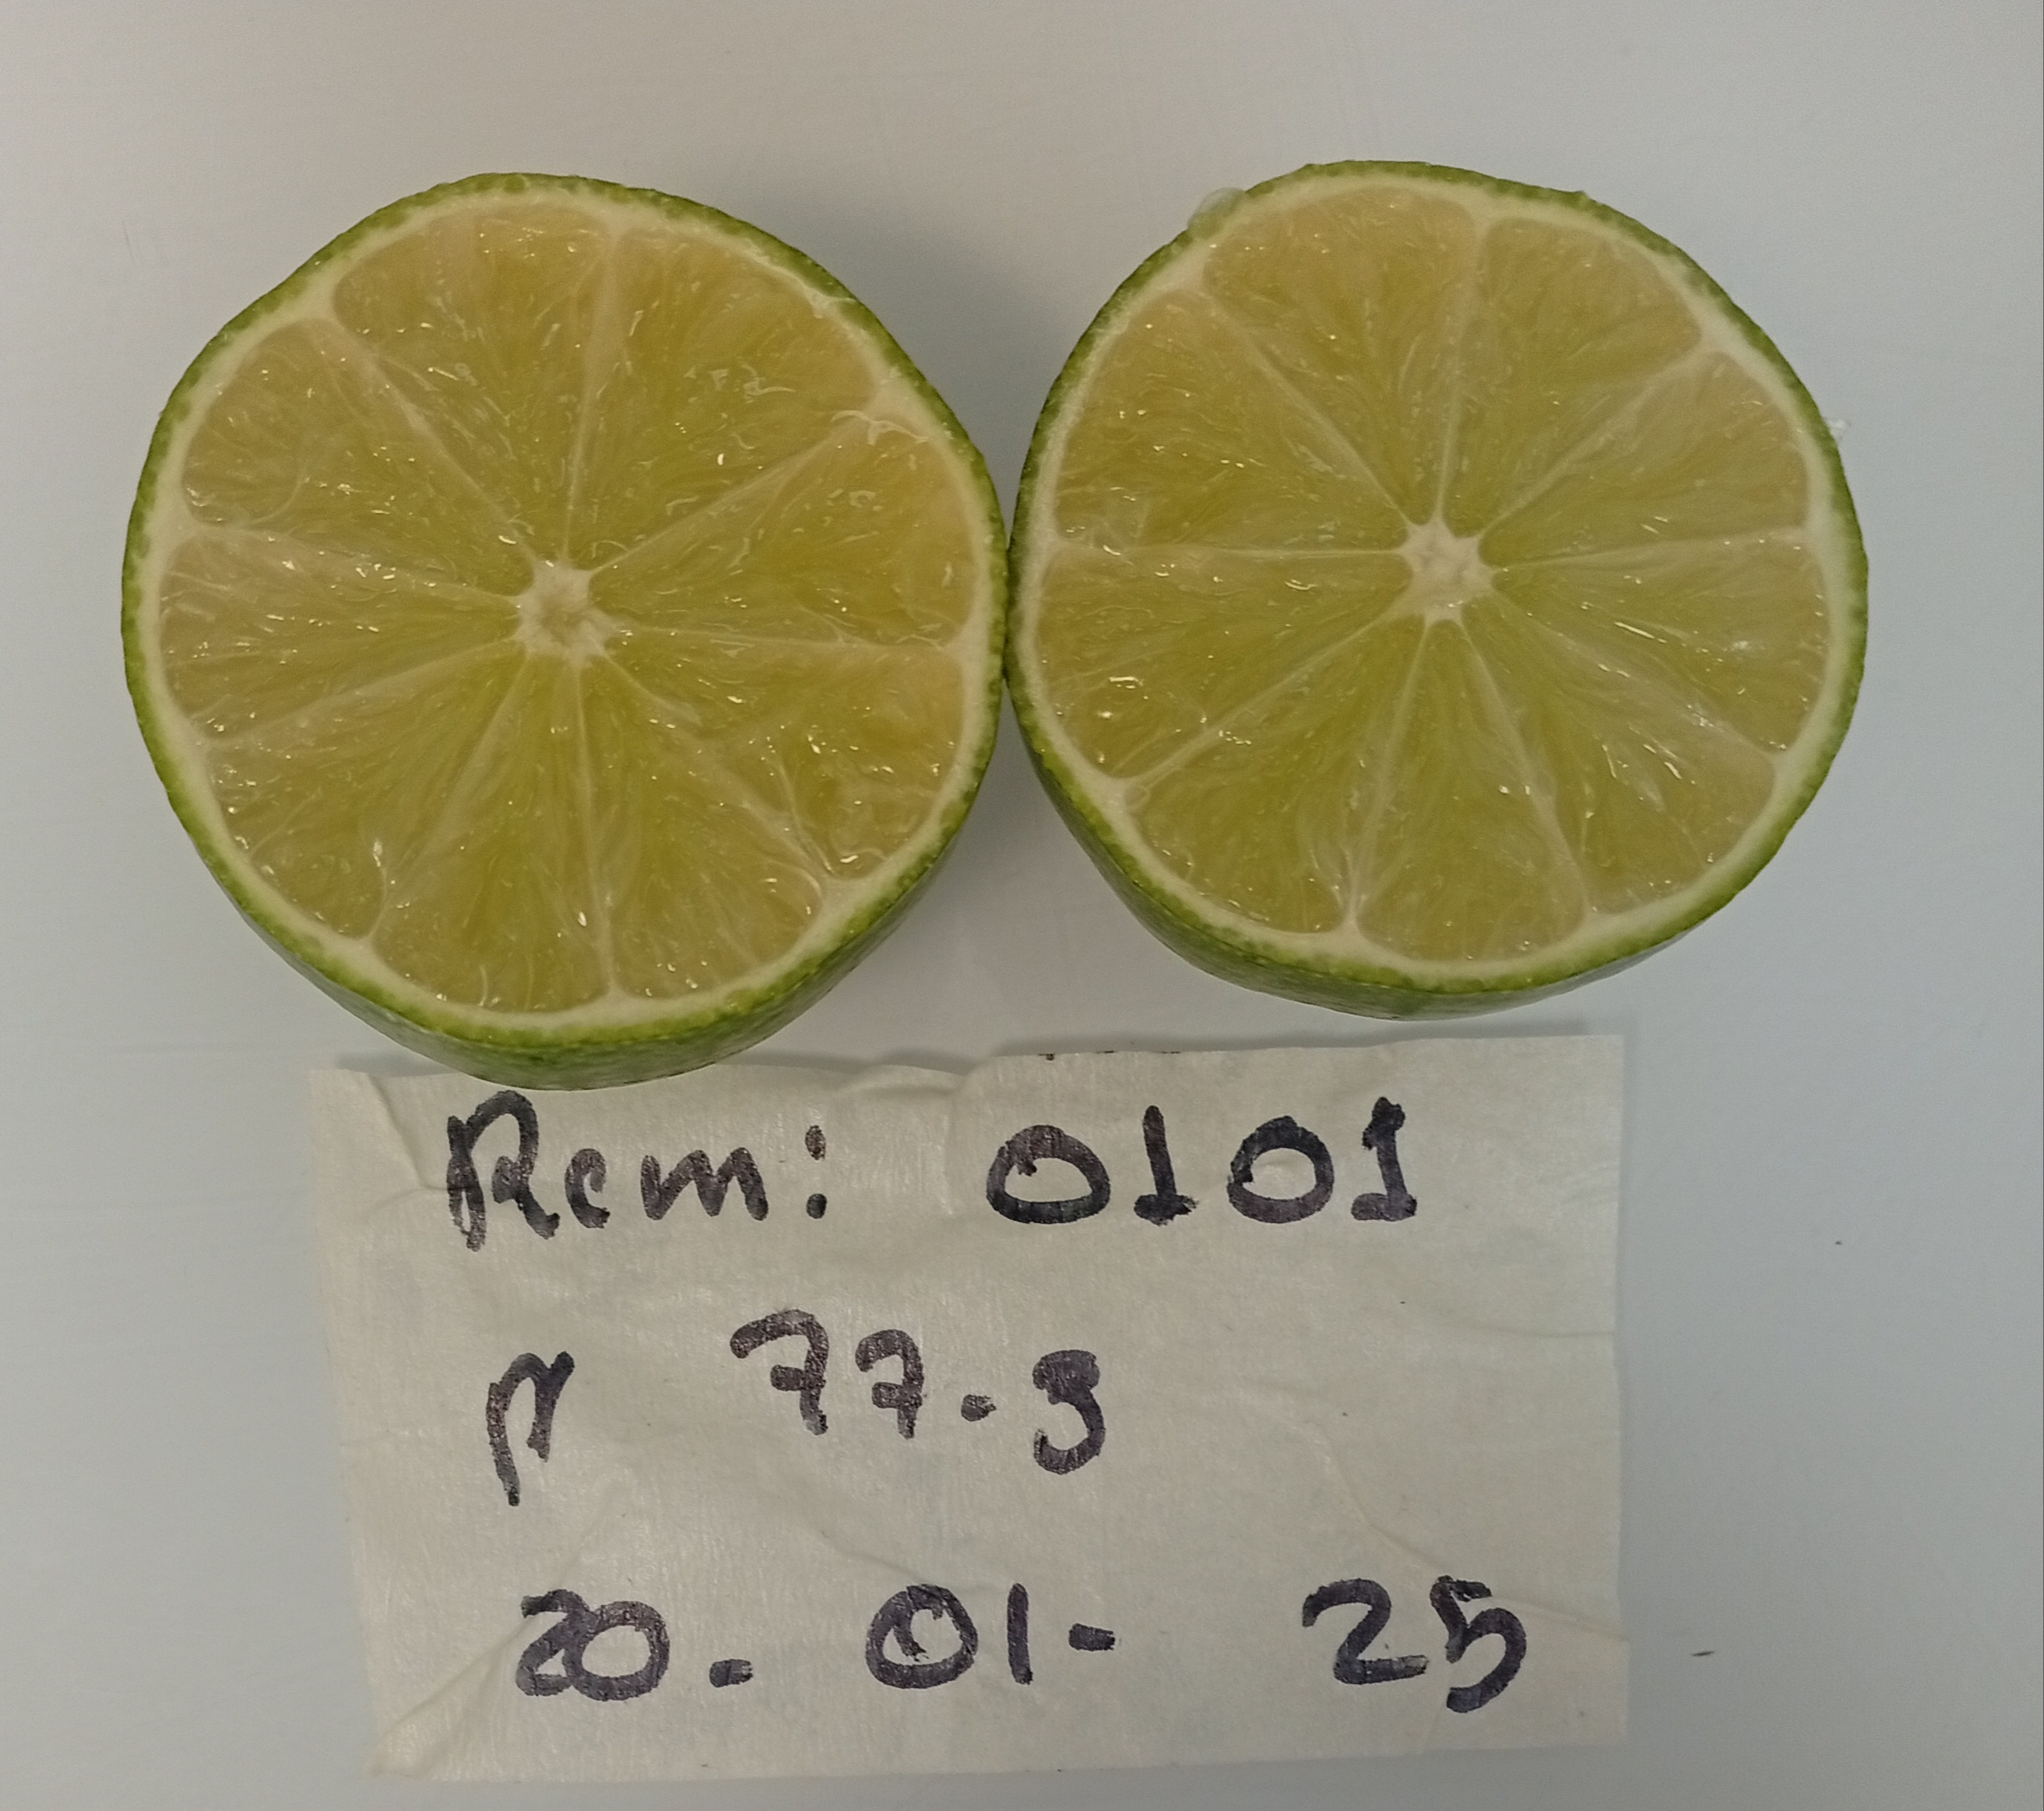 Rem: 0101
P 77-3
20-01-25